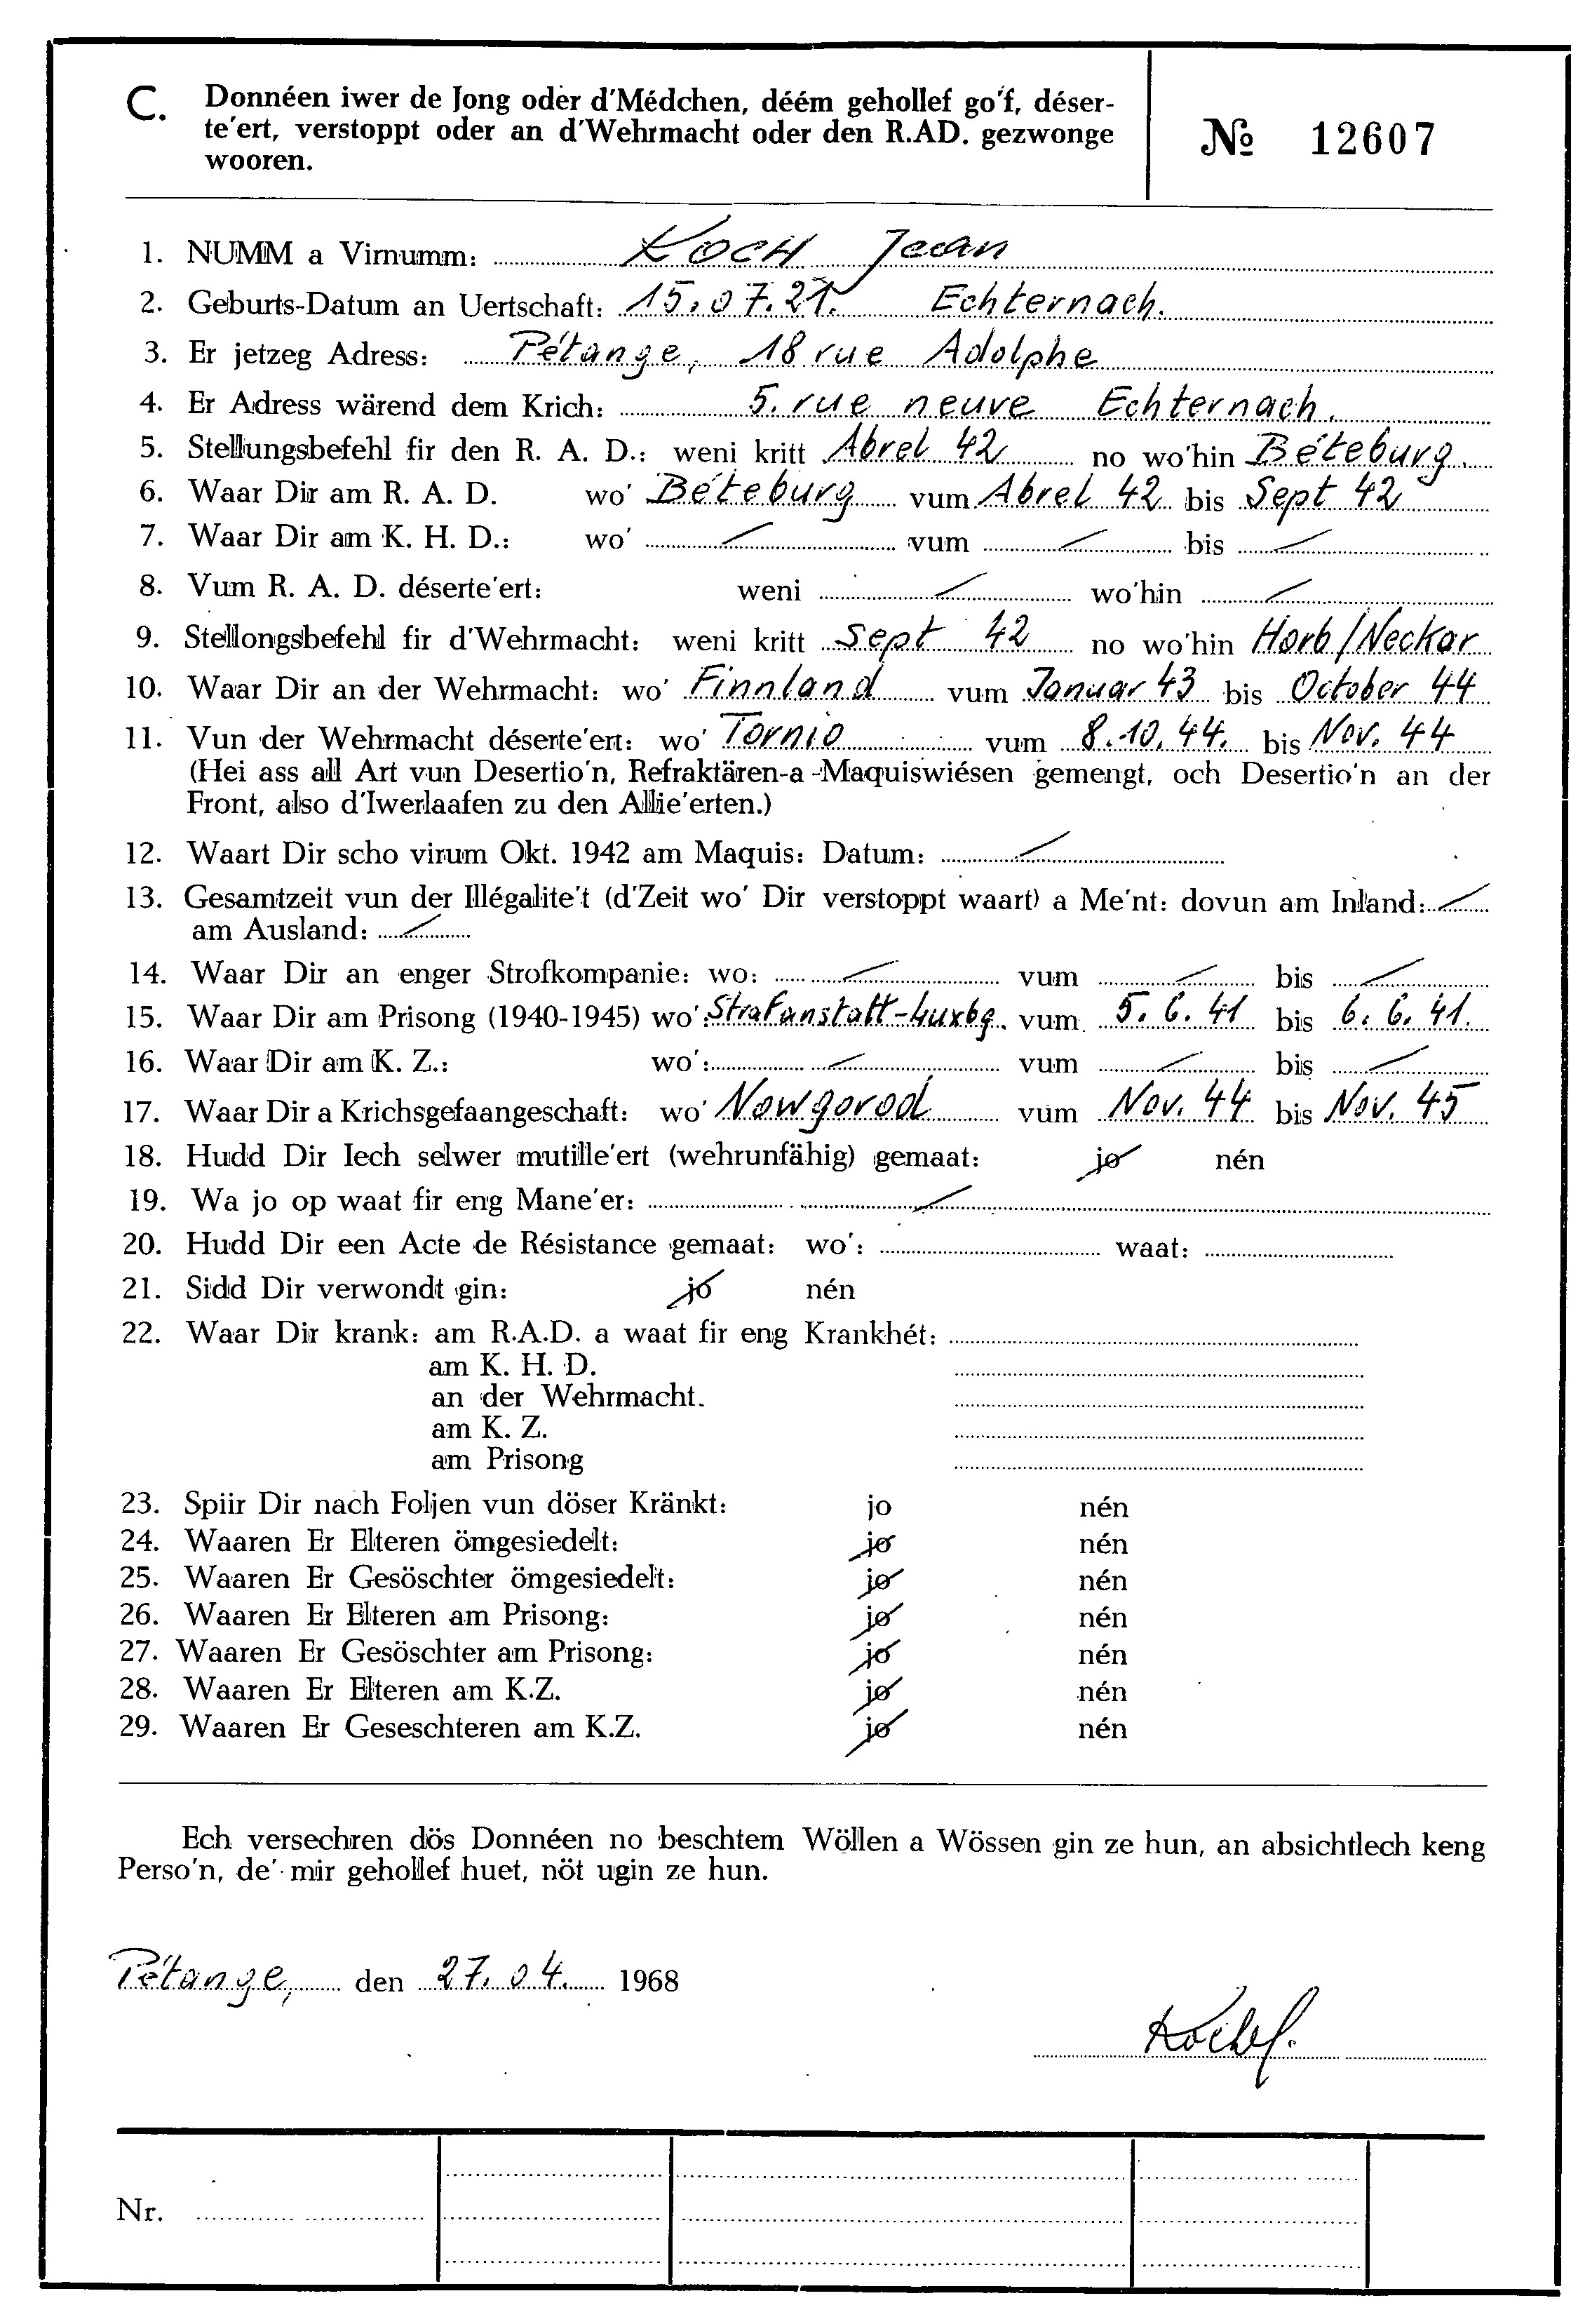 C. Donnéen iwer de Jong oder d'Médchen, déém gehollef go'f, déser-
te'ert, verstoppt oder an d'Wehrmacht oder den R.AD. gezwonge
wooren.
№ 12607
1. NUMM a Virnumm: KOCH Jean
2. Geburts-Datum an Uertschaft: 15.07.21. Echternach.
3. Er jetzeg Adress: Pétange, 18 rue Adolphe
4. Er Adress wärend dem Krich: 5. rue neuve Echternach.
5. Stellungsbefehl fir den R. A. D.: weni kritt Abrel 42 no wo'hin Béteburg.
6. Waar Dir am R. A. D. wo' Béteburg vum Abrel 42 bis Sept 42
7. Waar Dir am K. H. D.: wo' / vum / bis /
8. Vum R. A. D. déserte'ert: weni / wo'hin /
9. Stellongsbefehl fir d'Wehrmacht: weni kritt Sept 42 no wo'hin Horb/Neckar
10. Waar Dir an der Wehrmacht: wo' Finnland vum Januar 43 bis October 44
11. Vun der Wehrmacht déserte'ert: wo' Tornio vum 8.10.44. bis Nov. 44
(Hei ass all Art vun Desertio'n, Refraktären-a-Maquiswiésen gemengt, och Desertio'n an der
Front, also d'Iwerlaafen zu den Allie'erten.)
12. Waart Dir scho virum Okt. 1942 am Maquis: Datum: /
13. Gesamtzeit vun der Illégalite't (d'Zeit wo' Dir verstoppt waart) a Me'nt: dovun am Inland: /
am Ausland: /
14. Waar Dir an enger Strofkompanie: wo: / vum / bis /
15. Waar Dir am Prisong (1940-1945) wo': Strafanstatt-Luxbg. vum 5. 6. 41 bis 6. 6. 41.
16. Waar Dir am K. Z.: wo': / vum / bis /
17. Waar Dir a Krichsgefaangeschaft: wo' Nowgorod vum Nov. 44 bis Nov. 45
18. Hudd Dir Iech selwer mutille'ert (wehrunfähig) gemaat: jo nén
19. Wa jo op waat fir eng Mane'er: /
20. Hudd Dir een Acte de Résistance gemaat: wo': waat:
21. Sidd Dir verwondt gin: jo nén
22. Waar Dir krank: am R.A.D. a waat fir eng Krankhét:
am K. H. D.
an der Wehrmacht.
am K. Z.
am Prisong
23. Spiir Dir nach Foljen vun döser Kränkt: jo nén
24. Waaren Er Elteren ömgesiedelt: jo nén
25. Waaren Er Gesöschter ömgesiedelt: jo nén
26. Waaren Er Elteren am Prisong: jo nén
27. Waaren Er Gesöschter am Prisong: jo nén
28. Waaren Er Elteren am K.Z. jo nén
29. Waaren Er Geseschteren am K.Z. jo nén
Ech versechren dös Donnéen no beschtem Wöllen a Wössen gin ze hun, an absichtlech keng
Perso'n, de' mir gehollef huet, nöt ugin ze hun.
Pétange, den 27.04. 1968
Koch.
Nr.